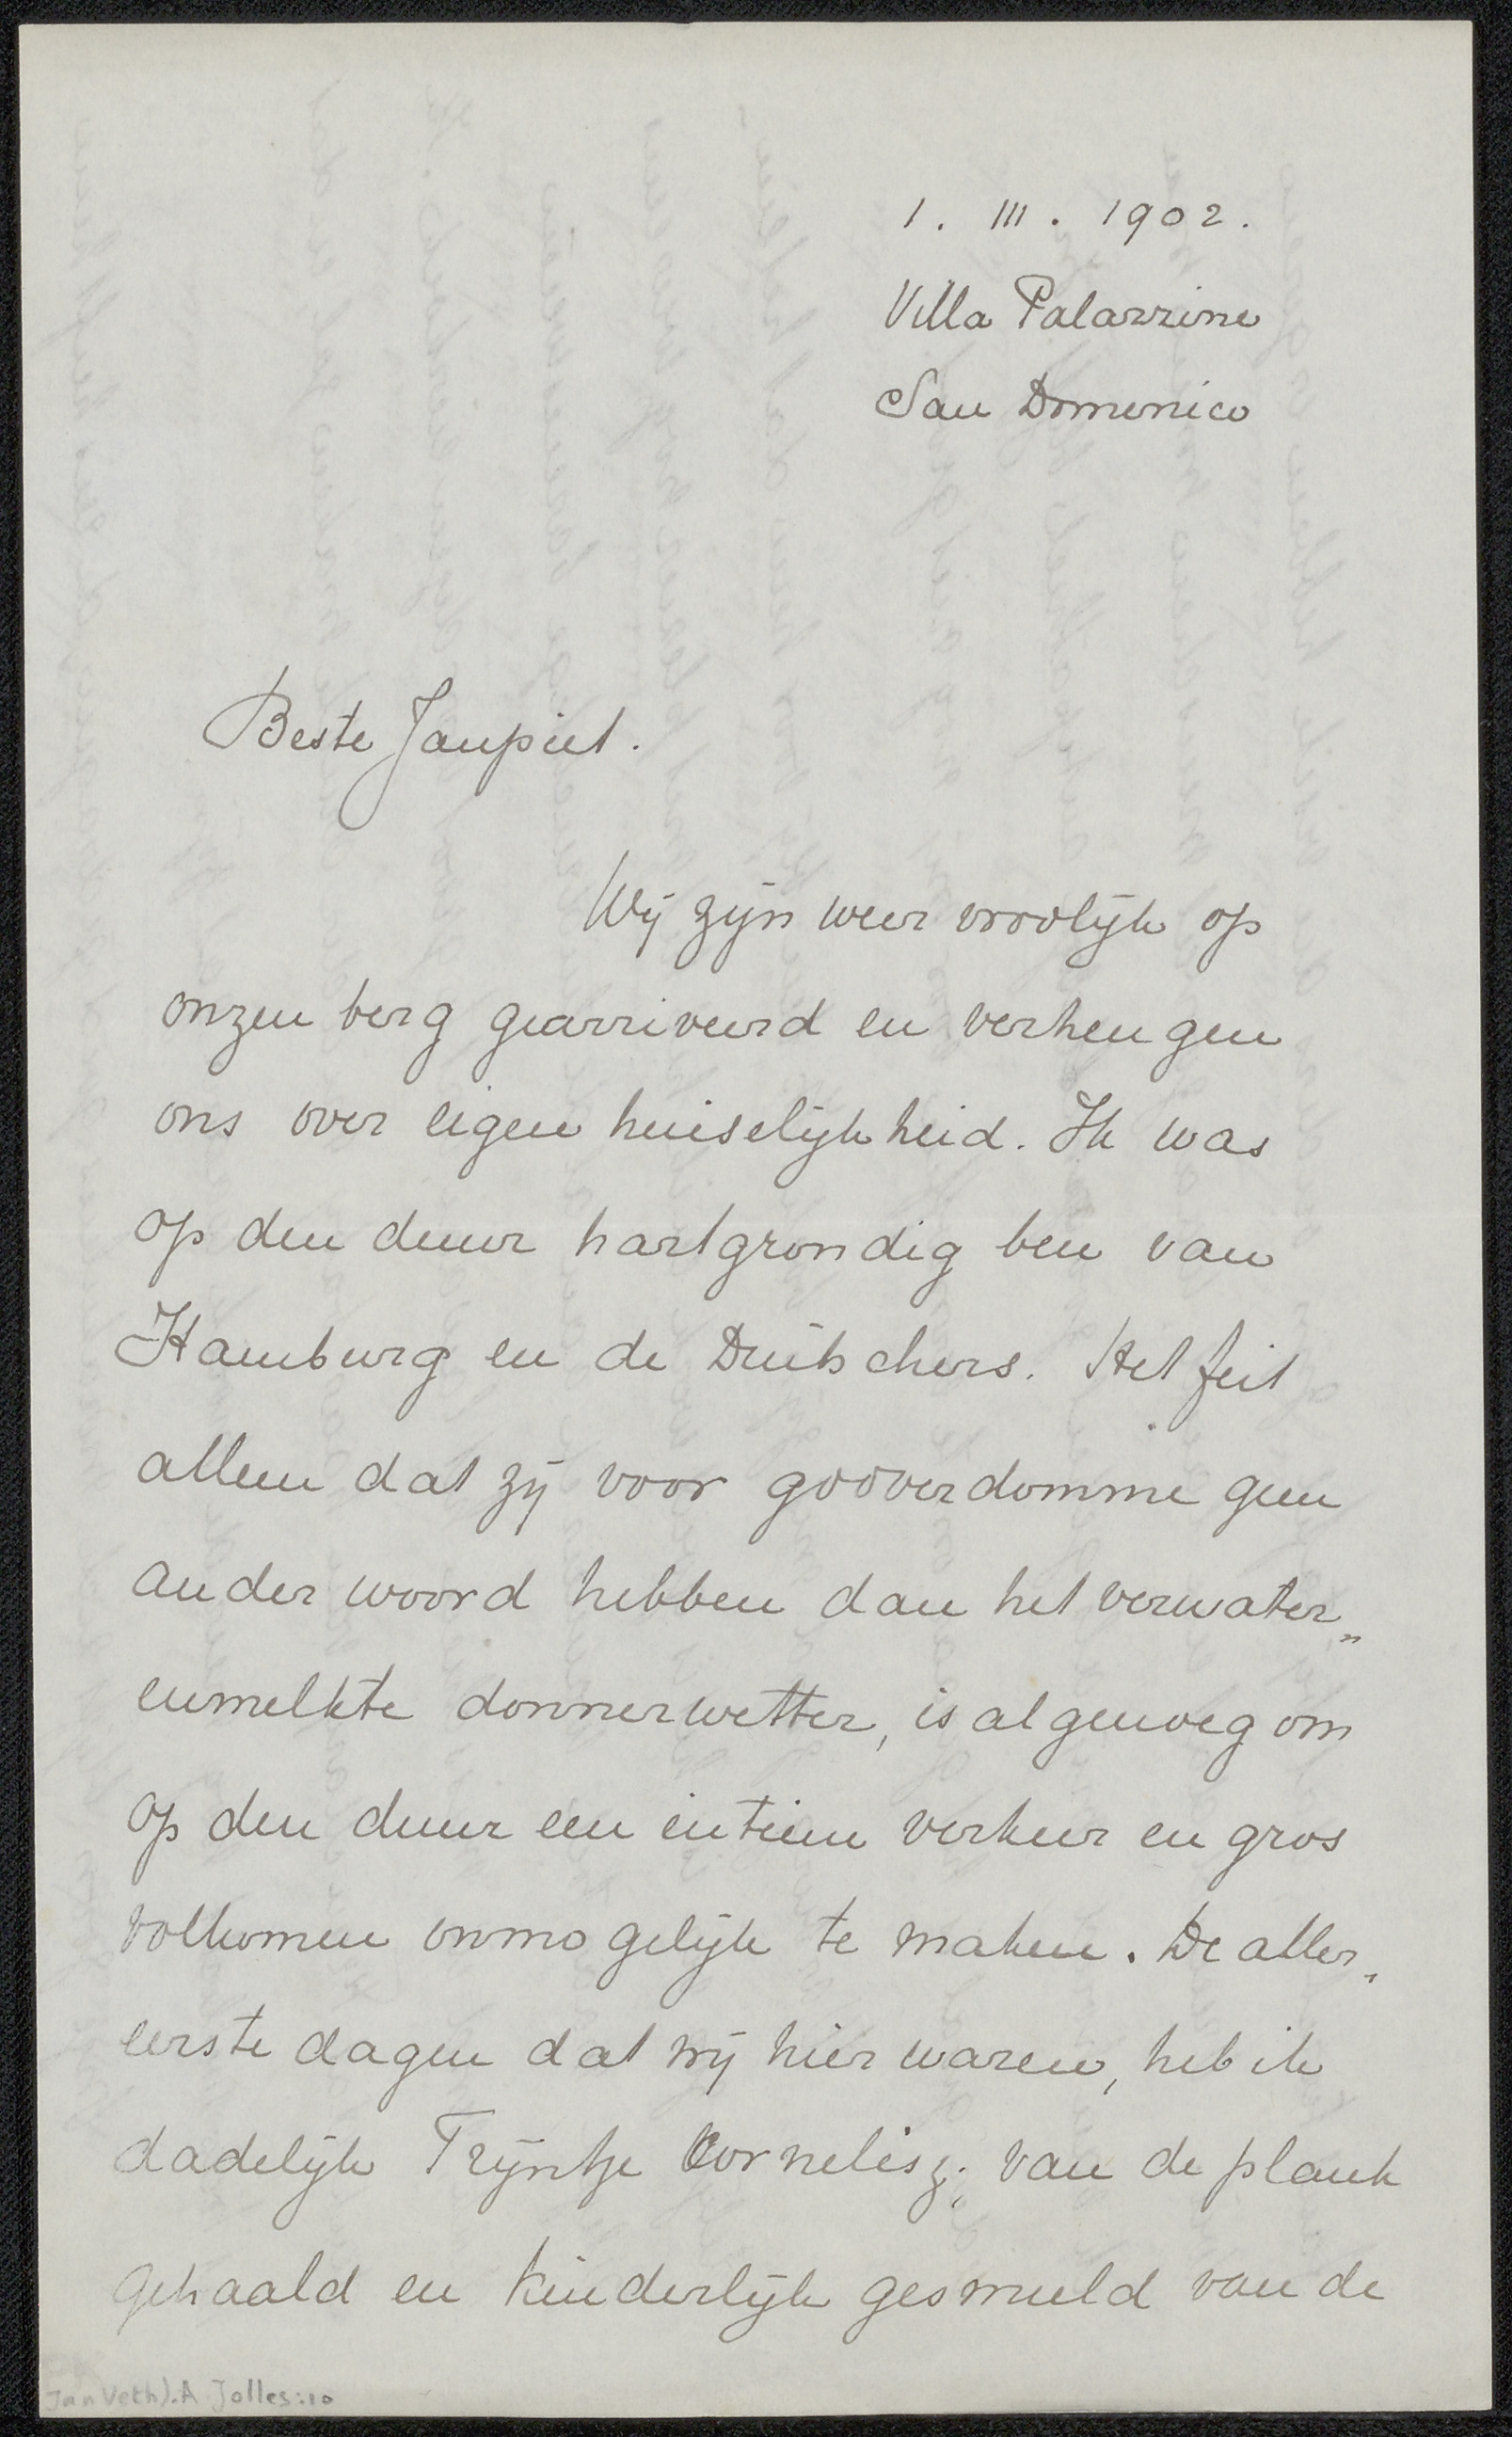 1. III. 1902.
Villa Palazzine
San Domenico
Beste Janpiet.
Wij zijn weer vroolijk op
onzen berg gearriveerd en verheugen
ons over eigen huiselijkheid. Ik was
op den duur hartgrondig beu van
Hamburg en de Duitschers. Het feit
alleen dat zij voor gooverdomme geen
ander woord hebben dan het verwater„
enmelkte donnerwetter, is al genoeg om
op den duur een intiem verkeer en gros
volkomen onmogelijk te maken. De aller„
eerste dagen dat wij hier waren, heb ik
dadelijk Trijntje Cornelisz. van de plank
gehaald en kinderlijk gesmuld van de
Jan Veth).A Jolles:10